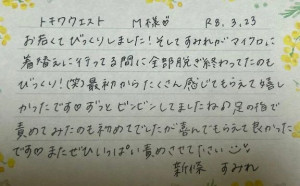 トキワクエスト M様♡ R8.3.23
お若くてびっくりしました！そしてすみれがマイクロに
着替えに行ってる間に全部脱ぎ終わってたのも
びっくり！(笑)最初からたくさん感じてもらえて嬉し
かったです♡ずっとビンビンしてましたね♪足の指で
責めてみたのも初めてでしたが喜んでもらえて良かった
です♡またぜひいっぱい責めさせて下さい
新妻 すみれ